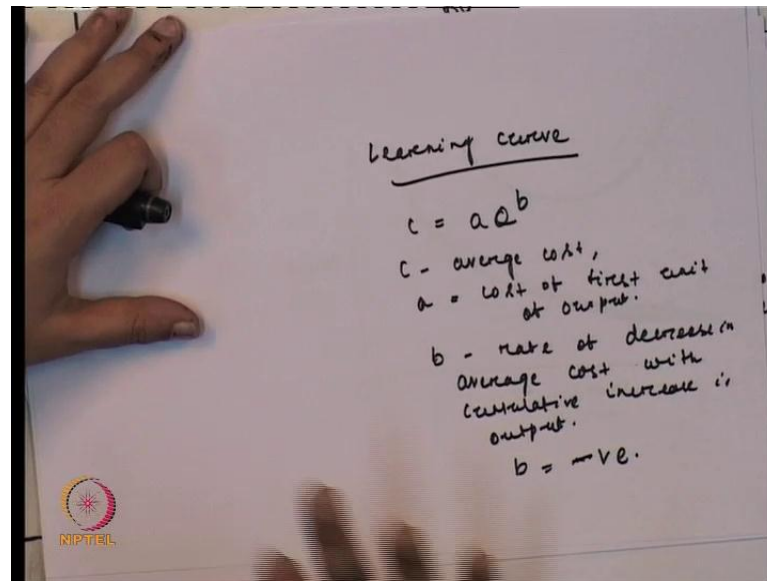 Learning curve
C = aQ^b
C - average cost,
a = cost of first unit
of output.
b - rate of decrease in
average cost with
cumulative increase in
output.
b = -ve.
NPTEL